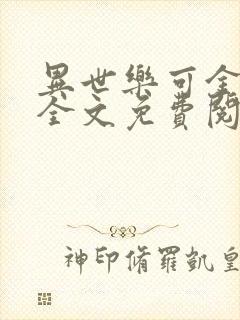 異世樂可全
全文免費閱
神印脩羅凱皇